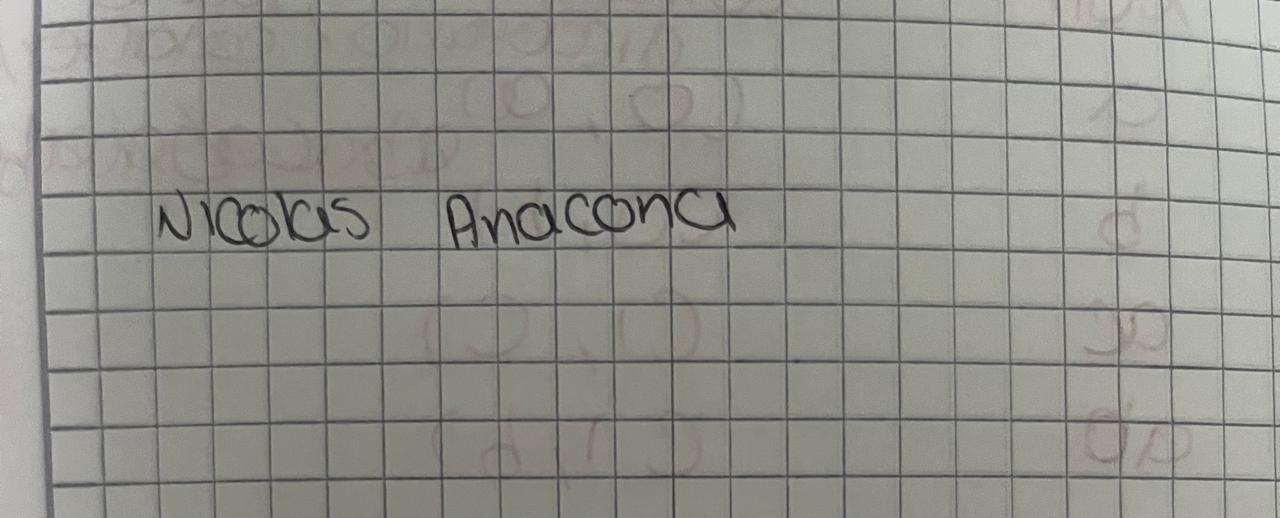 Nicolas Anacona